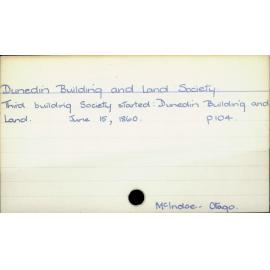 Dunedin Building and Land Society
Third building Society started: Dunedin Building and
Land. June 15, 1860. p104.
McIndoe - Otago.